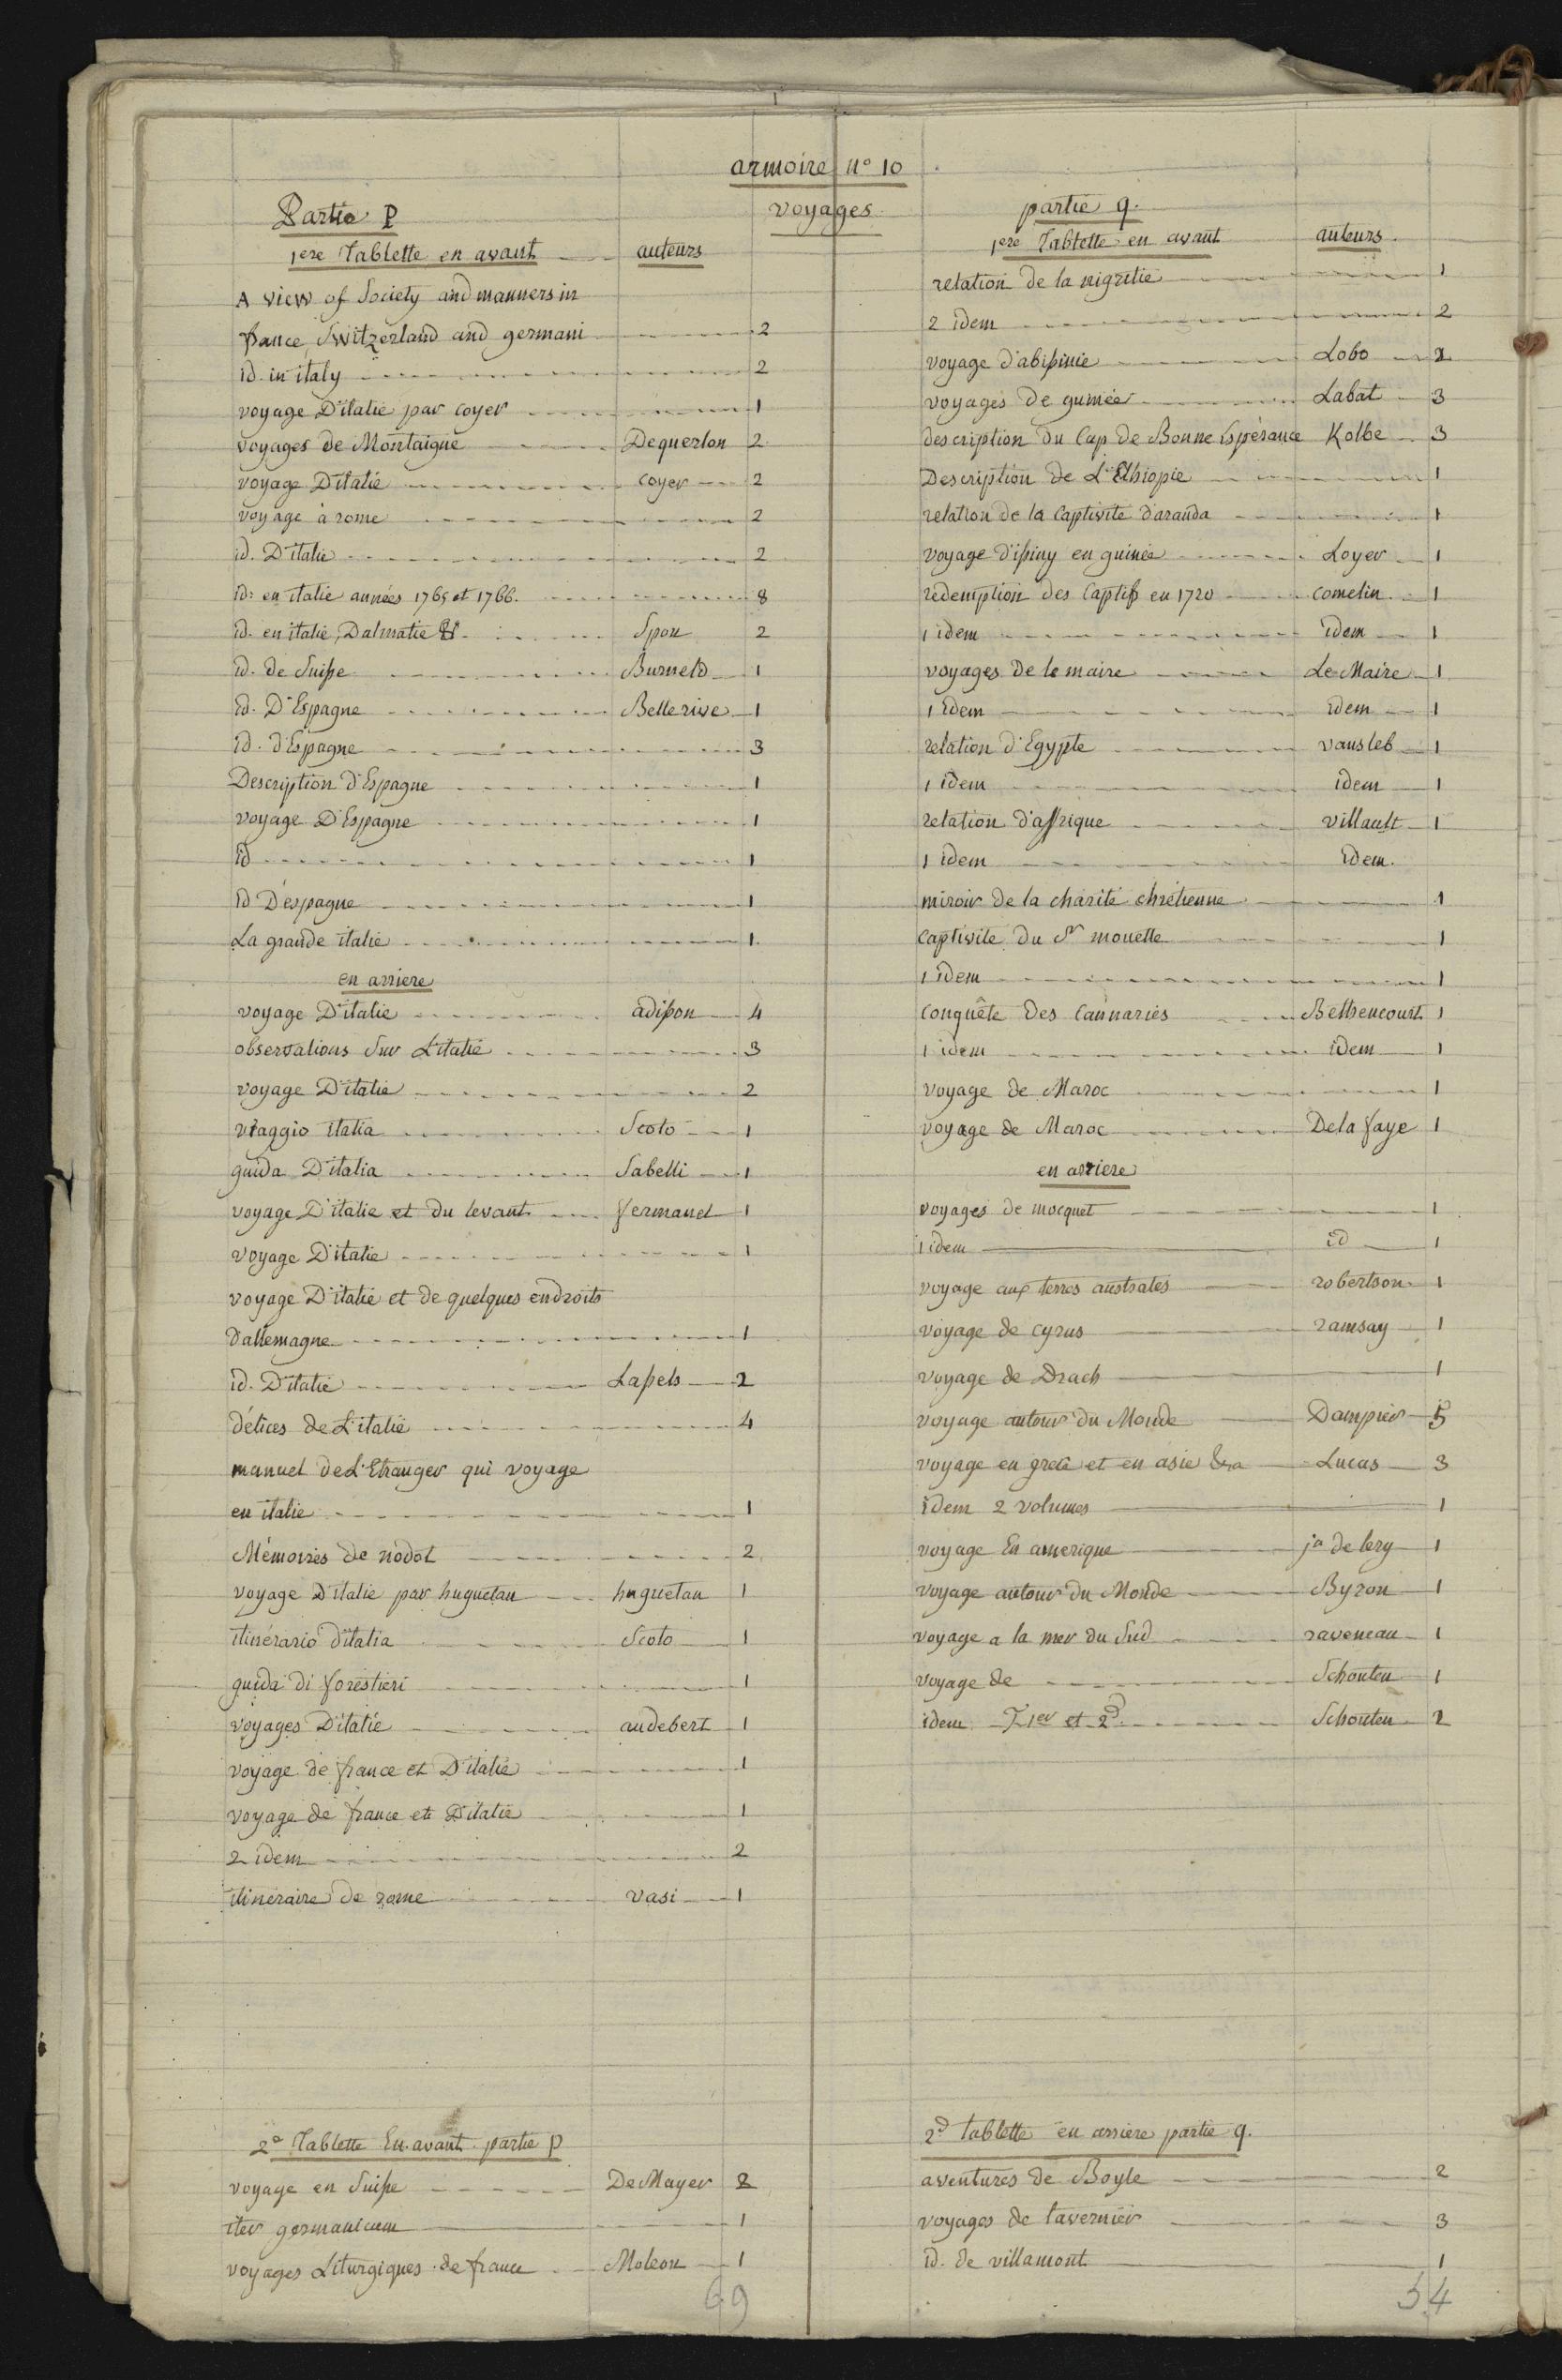 armoire n° 10
voyages
Partie P
1ere Tablette en avant auteurs
A view of Society and manners in
france, Switzerland and germani 2
id. in italy 2
voyage D'italie par coyer 1
voyages de Montaigne Dequerlon 2
voyage D'italie coyer 2
voyage à rome 2
id. D'italie 2
id. en italie années 1765 et 1766. 8
id. en italie, Dalmatie &. Spon 2
id. de Suisse Burneld 1
id. D'Espagne Bellerive 1
id. d'Espagne 3
Description d'Espagne 1
voyage D'Espagne 1
id 1
id D'espagne 1
La grande italie 1.
en arriere
voyage D'italie adisson 4
observations Sur L'italie 3
voyage D'italie 2
viaggio italia Scoto 1
guida D'italia Sabelli 1
voyage D'italie et du levant fermanel 1
voyage D'italie 1
voyage D'italie et de quelques endroits
d'allemagne 1
id. D'italie Lassels 2
délices de L'italie 4
manuel de L'Etranger qui voyage
en italie 1
Mémoires de nodot 2
voyage D'italie par huguetan huguetan 1
itinérario d'italia Scoto 1
guida di forestieri 1
voyages D'italie audebert 1
voyage de france et D'italie 1
voyage de france et D'italie 1
2 idem 2
itineraire de rome vasi 1
2e Tablette En avant partie P
voyage en Suisse De Mayer 2
iter germanicum 1
voyages Liturgiques de france Moleon 1
69
partie q.
1ere Tablette en avant auteurs.
relation de la nigritie 1
2 idem 2
voyage d'abissinie Lobo 2
voyages de guinée Labat 3
description du Cap de Bonne Espérance Kolbe 3
Description de L'Ethiopie 1
relation de la captivité d'aranda 1
voyage d'issiny en guinée Loyer 1
redemption des Captifs en 1720 comelin 1
1 idem idem 1
voyages de le maire Le Maire 1
1 idem idem 1
relation d'Egypte vansleb 1
1 idem idem 1
relation d'affrique villault 1
1 idem idem.
miroir de la charité chrétienne 1
captivite du Sr mouette 1
1 idem 1
conquête des Cannaries Bethencourt 1
1 idem idem 1
voyage de Maroc 1
voyage de Maroc De la faye 1
en arriere
voyages de mocquet 1
1 idem id 1
voyage aux terres australes robertson 1
voyage de cyrus ramsay 1
voyage de Drach 1
voyage autour du Monde Dampier 5
voyage en grece et en asie &ra Lucas 3
idem 2 volumes 1
voyage En amerique ja de lery 1
voyage autour du Monde Byron 1
voyage a la mer du Sud raveneau 1
voyage de Schouten 1
idem T. 1er et 2d Schouten 2
2d tablette en arriere partie q.
aventures de Boyle 2
voyages de tavernier 3
id. de villamont 1
54